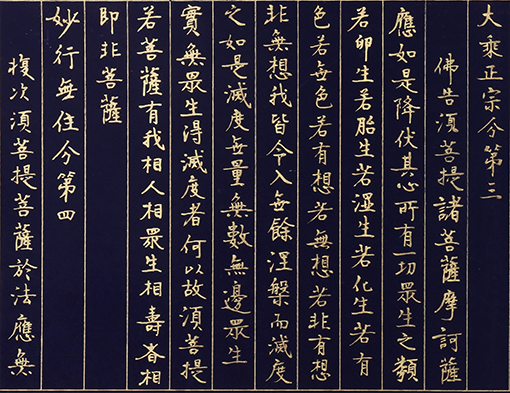 大乘正宗分第三
佛告須菩提諸菩薩摩訶薩
應如是降伏其心所有一切眾生之類
若卵生若胎生若濕生若化生若有
色若無色若有想若無想若非有想
非無想我皆令入無餘涅槃而滅度
之如是滅度無量無數無邊眾生
實無眾生得滅度者何以故須菩提
若菩薩有我相人相眾生相壽者相
即非菩薩
妙行無住分第四
復次須菩提菩薩於法應無